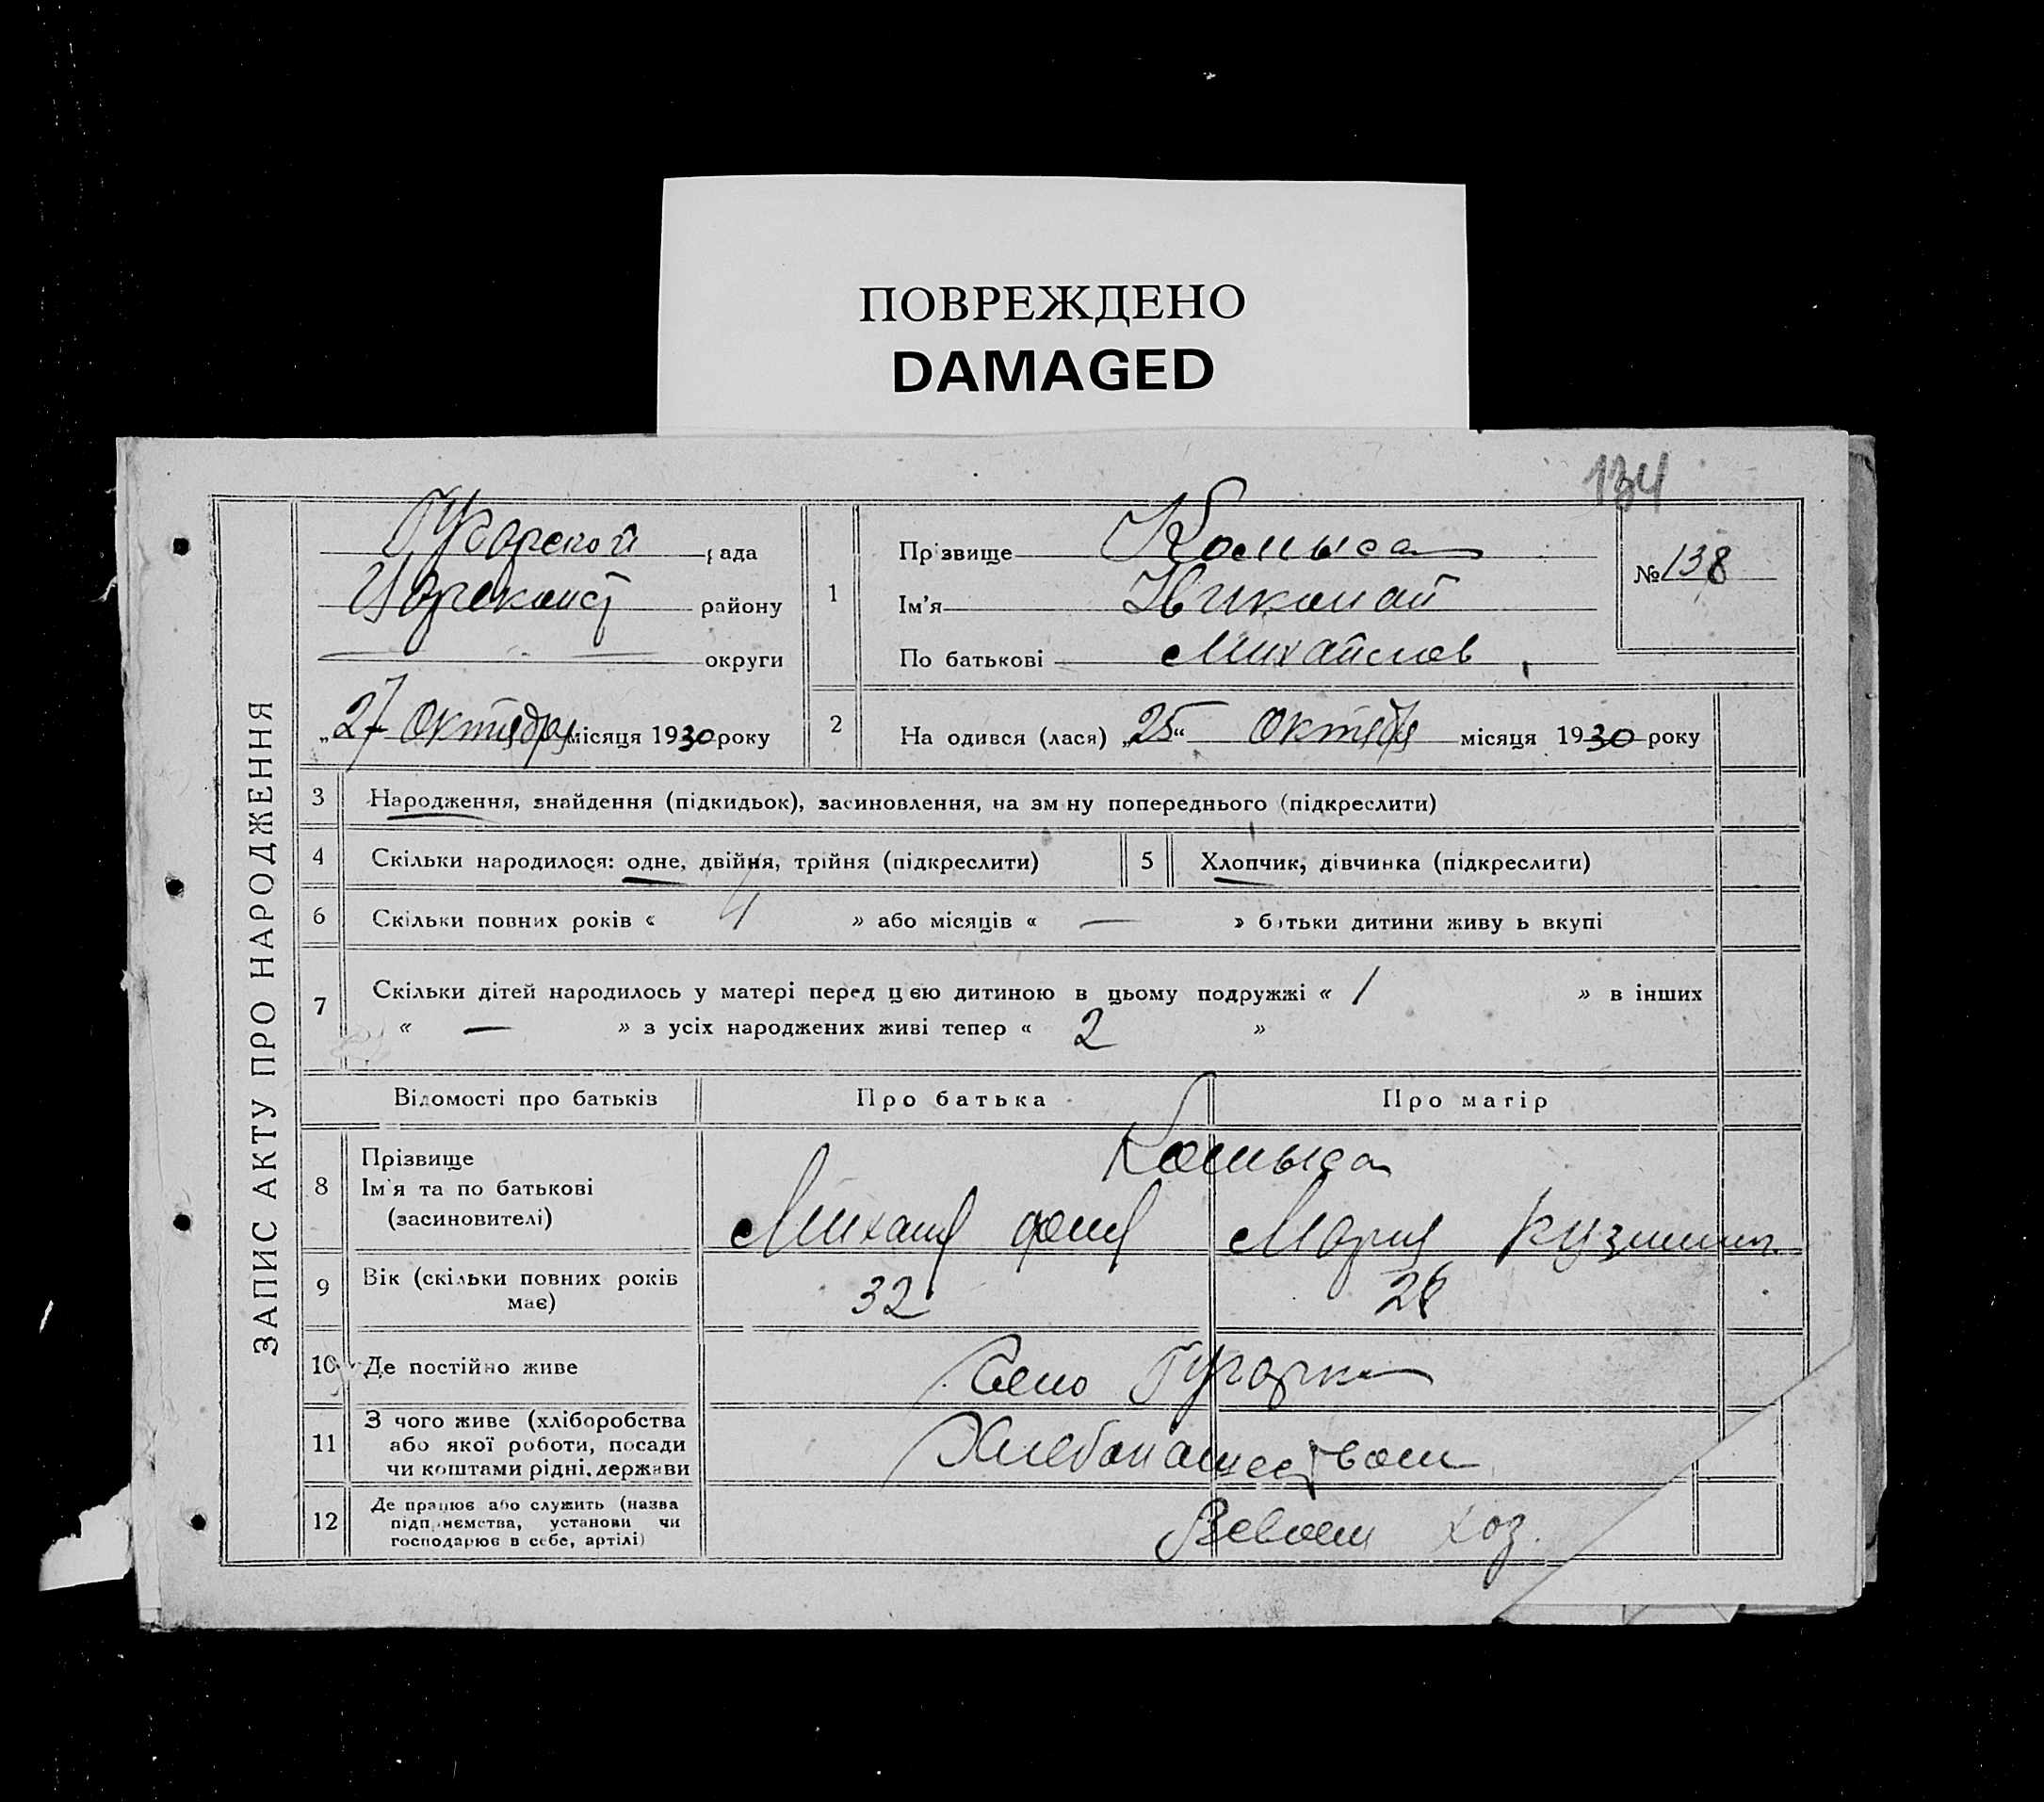 ПОВРЕЖДЕНО
DAMAGED
134
ЗАПИС АКТУ ПРО НАРОДЖЕННЯ
рада
району
округи
„27 Октября місяця 1930 року
1
Прізвище Комыса
Ім'я Николай
По батькові Михайлов
№ 138
2 На одився (лася) „25“ Октября місяця 1930 року
3 Народження, знайдення (підкидьок), засиновлення, на зм ну попереднього (підкреслити)
4 Скільки народилося: одне, двійня, трійня (підкреслити)
5 Хлопчик, дівчинка (підкреслити)
6 Скільки повних років « 4 » або місяців « — » батьки дитини живу ь вкупі
7 Скільки дітей народилось у матері перед цією дитиною в цьому подружжі « 1 » в інших
« — » з усіх народжених живі тепер « 2 »
Відомості про батьків Про батька Про матір
8 Прізвище
Ім'я та по батькові
(засиновителі)
Комыса
Михаил Мария Кузмин
9 Вік (скільки повних років
має)
32 26
10 Де постійно живе Село
11 З чого живе (хліборобства
або якої роботи, посади
чи коштами рідні, держави
Хлебопашеством
12 Де працює або служить (назва
підп иємства, установи чи
господарює в себе, артілі)
В своем хоз.